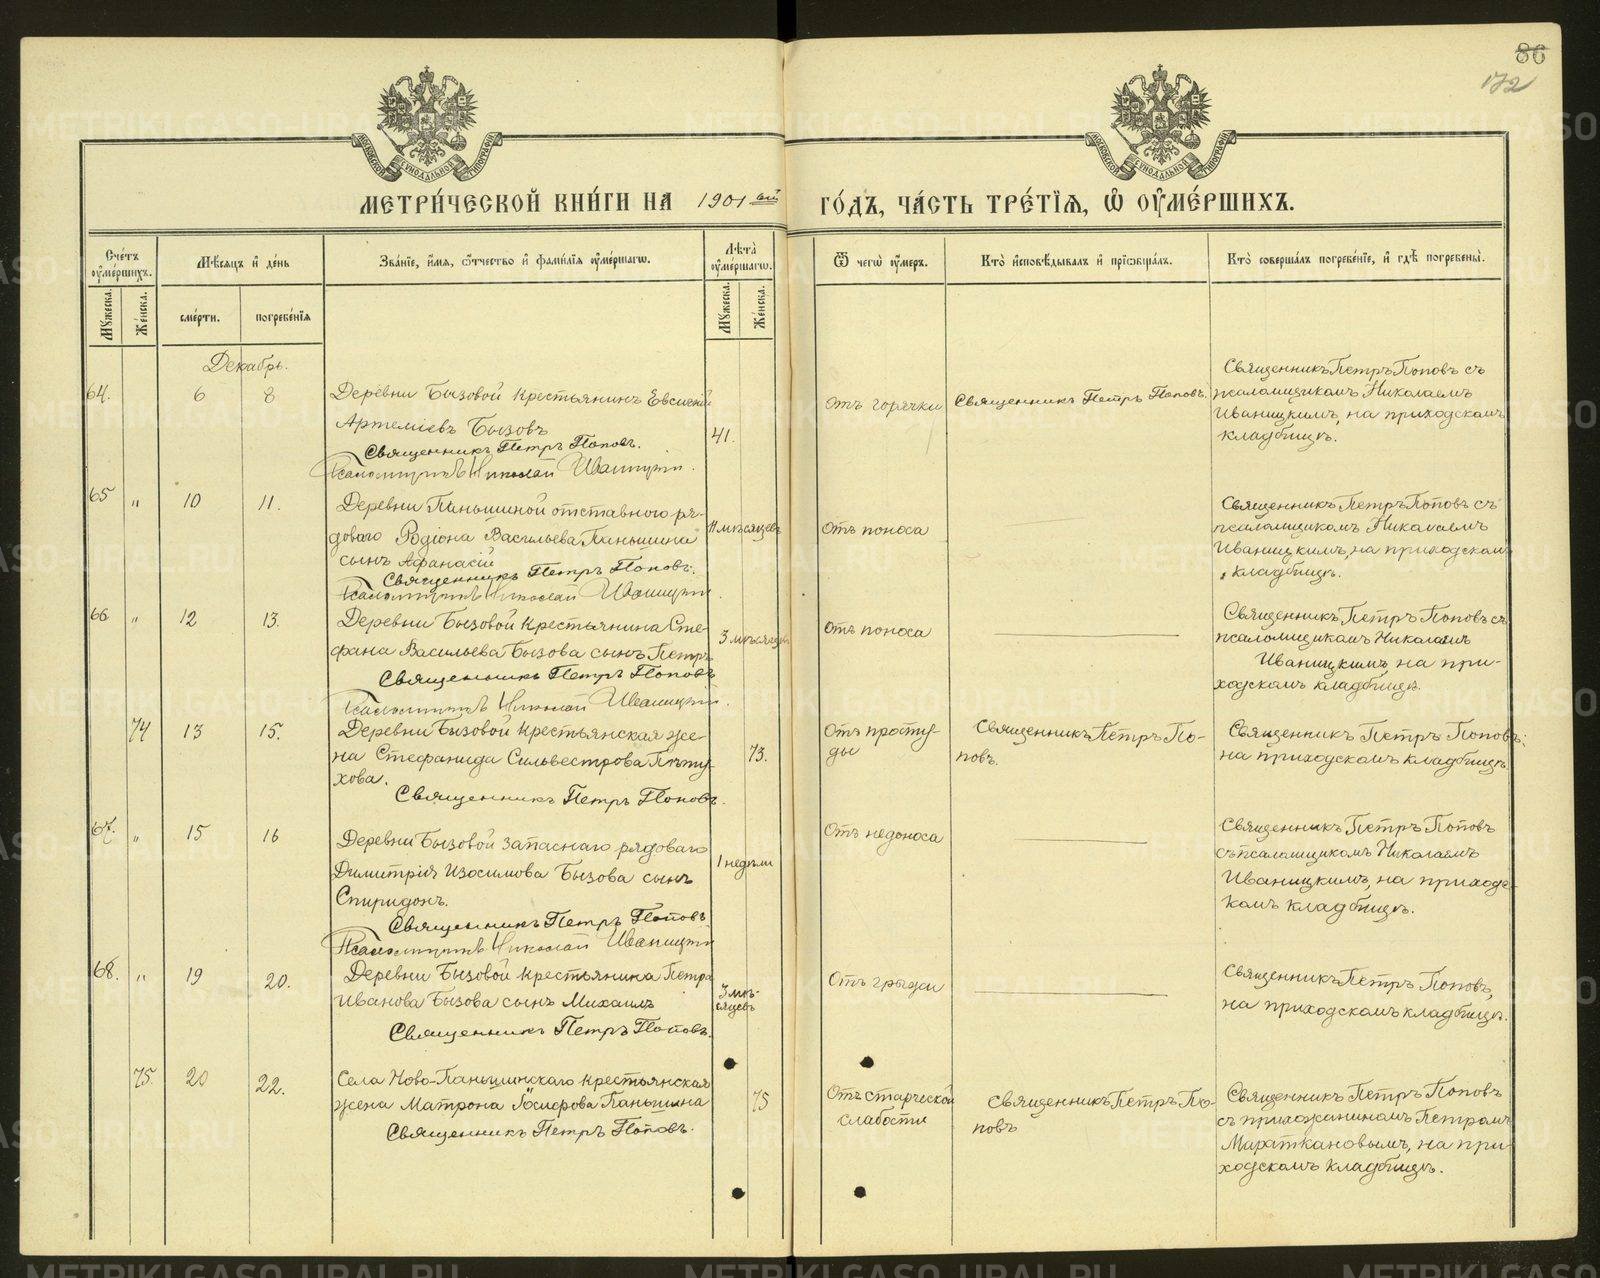 86
172
МОСКОВСКОЙ СѴНОДАЛЬНОЙ ТИПОГРАФІИ
МОСКОВСКОЙ СѴНОДАЛЬНОЙ ТИПОГРАФІИ
МЕТРИ́ЧЕСКОЙ КНИ́ГИ НА 1901 ый ГО́ДЪ, ЧА́СТЬ ТРЕ́ТІѦ, Ѡ҆ ОУ҆МЕ́РШИХЪ.
Сче́тъ оу҆ме́ршихъ.
Мꙋ́жеска.
Же́нска.
Мѣ́сѧцъ и҆ де́нь
сме́рти.
погребе́нїѧ
Зва́нїе, и҆́мѧ, ѻ҆́тчество и҆ фами́лїѧ оу҆ме́ршагѡ.
Лѣ́та оу҆ме́ршагѡ.
Мꙋ́жеска.
Же́нска.
Ѿ чегѡ̀ оу҆́меръ.
Кто̀ и҆сповѣ́дывалъ и҆ прїѡбща́лъ.
Кто̀ соверша́лъ погребе́нїе, и҆ гдѣ̀ погребены̀.
Декабрь.
64.
6
8
Деревни Бызовой крестьянинъ Евсиеній
Артеміевъ Бызовъ
Священникъ Петръ Поповъ.
Псаломщикъ Николай Иваницкій.
41.
Отъ горячки
Священникъ Петръ Поповъ.
Священникъ Петръ Поповъ съ
псаломщикомъ Николаемъ
Иваницкимъ, на приходскомъ
кладбищѣ.
65
"
10
11.
Деревни Паньшиной отставного ря-
дового Родіона Васильева Паньшина
сынъ Афанасій
Священникъ Петръ Поповъ.
Псаломщикъ Николай Иваницкій.
11 мѣсяцевъ
Отъ поноса
Священникъ Петръ Поповъ съ
псаломщикомъ Николаемъ
Иваницкимъ, на приходскомъ
кладбищѣ.
66
"
12
13.
Деревни Бызовой крестьянина Сте-
фана Васильева Бызова сынъ Петръ
Священникъ Петръ Поповъ
Псаломщикъ Николай Иваницкій.
3 мѣсяцевъ
Отъ поноса
Священникъ Петръ Поповъ съ
псаломщикомъ Николаемъ
Иваницкимъ на при-
ходскомъ кладбищѣ.
74
13
15.
Деревни Бызовой крестьянская же-
на Стефанида Сильвестрова Пѣту-
хова.
Священникъ Петръ Поповъ.
73.
Отъ просту-
ды
Священникъ Петръ По-
повъ.
Священникъ Петръ Поповъ.
на приходскомъ кладбищѣ.
67.
"
15
16
Деревни Бызовой запаснаго рядоваго
Димитрія Изосимова Бызова сынъ
Спиридонъ.
Священникъ Петръ Поповъ
Псаломщикъ Николай Иваницкій
1 недѣли
Отъ недоноса
Священникъ Петръ Поповъ
съ псаломщикомъ Николаемъ
Иваницкимъ, на приходс-
комъ кладбищѣ.
68.
"
19
20.
Деревни Бызовой крестьянина Петра
Иванова Бызова сынъ Михаилъ
Священникъ Петръ Поповъ.
3 мѣ-
сяцевъ
Отъ грыжи
Священникъ Петръ Поповъ,
на приходскомъ кладбищѣ.
75.
20
22.
Села Ново-Паньшинскаго крестьянская
жена Матрона Паньшина
Священникъ Петръ Поповъ.
75
Отъ старческой
слабости
Священникъ Петръ По-
повъ
Священникъ Петръ Поповъ
съ прихожаниномъ Петромъ
Мараткановымъ, на при-
ходскомъ кладбищѣ.
METRIKI.GASO-URAL.RU